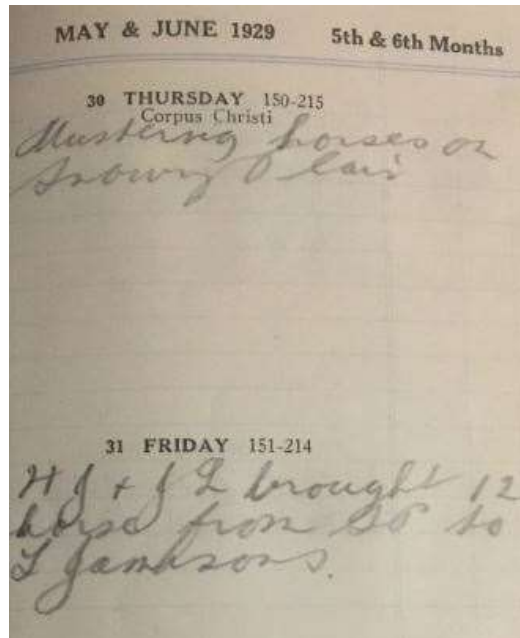 MAY & JUNE 1929 5th & 6th Months
30 THURSDAY 150-215
Corpus Christi
Mustering horses on
Snowy Plain
31 FRIDAY 151-214
H J + J L brought 12
horse from SP to
L Jamisons.